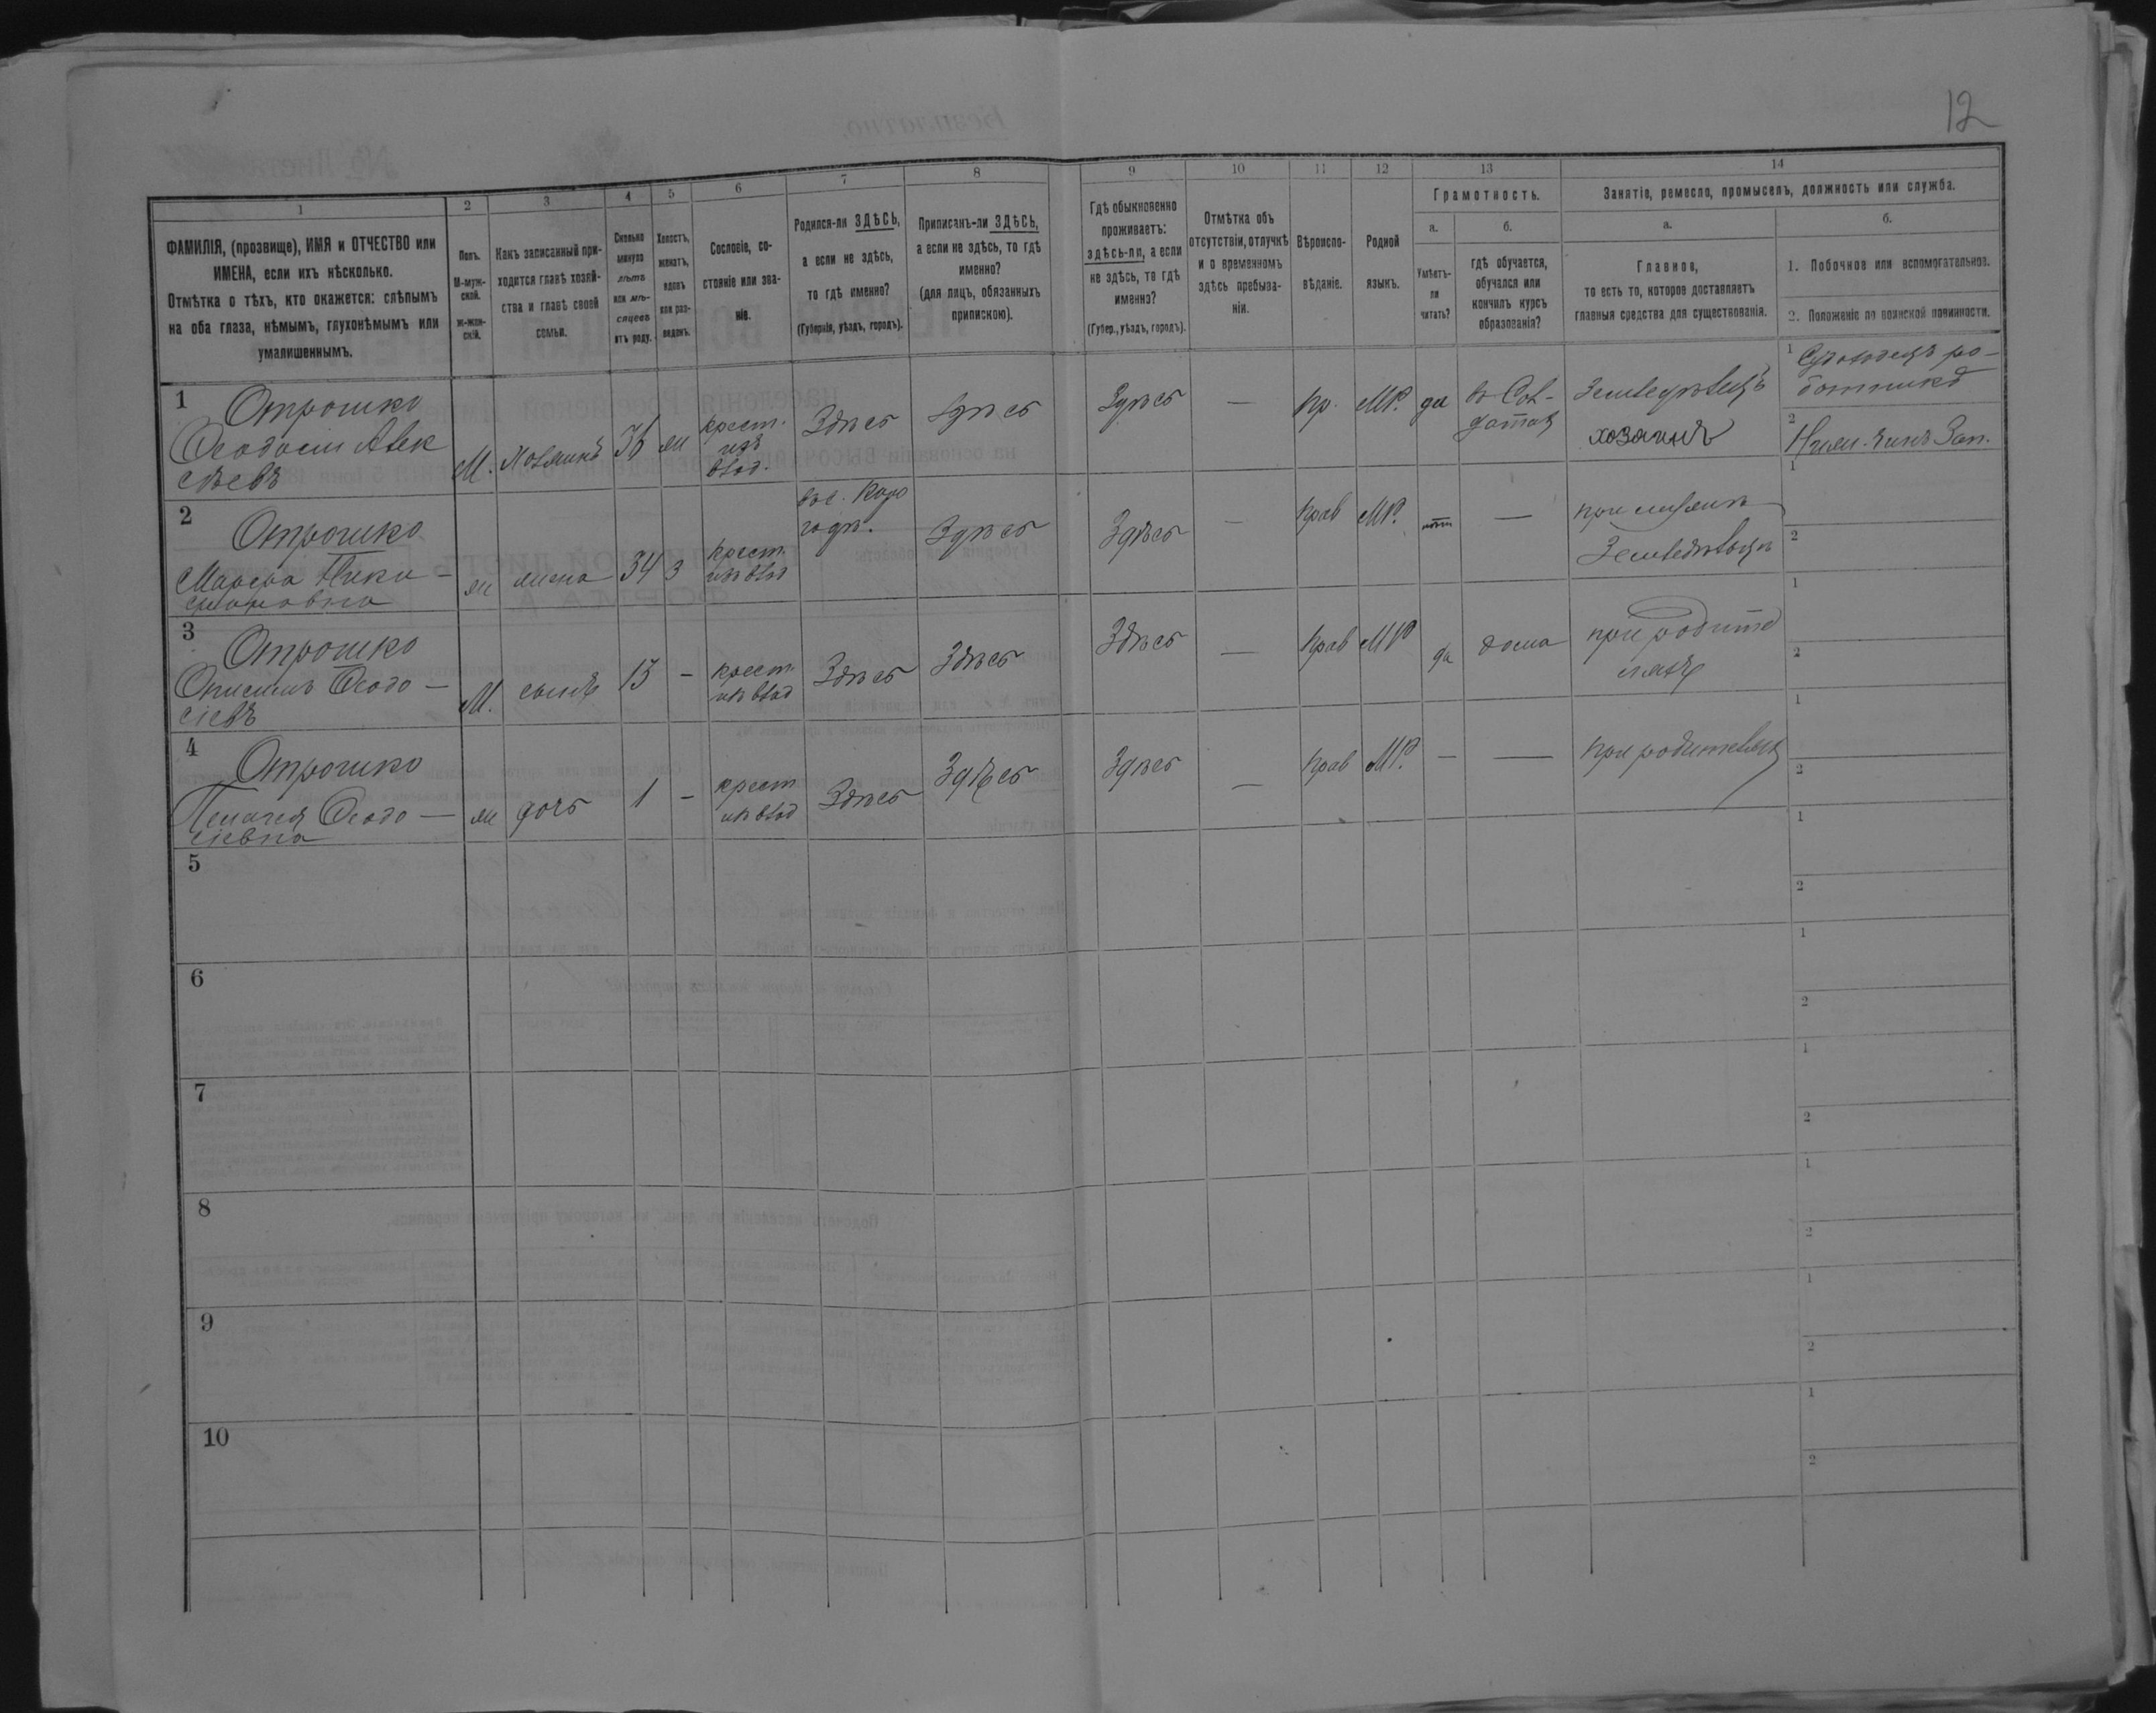 12
1 2 3 4 5 6 7 8 9 10 11 12 13 14
ФАМИЛІЯ, (прозвище), ИМЯ и ОТЧЕСТВО или
ИМЕНА, если ихъ нѣсколько.
Отмѣтка о тѣхъ, кто окажется: слѣпымъ
на оба глаза, нѣмымъ, глухонѣмымъ или
умалишеннымъ.
Полъ.
М-муж-
ской.
Ж-жен-
скій.
Какъ записанный при-
ходится главѣ хозяй-
ства и главѣ своей
семьи.
Сколько
минуло
лѣтъ
или мѣ-
сяцевъ
отъ роду.
Холостъ,
женатъ,
вдовъ
или раз-
веденъ.
Сословіе, со-
стояніе или зва-
ніе.
Родился-ли ЗДѢСЬ,
а если не здѣсь,
то гдѣ именно?
(Губернія, уѣздъ, городъ).
Приписанъ-ли ЗДѢСЬ,
а если не здѣсь, то гдѣ
именно?
(для лицъ, обязанныхъ
припискою).
Гдѣ обыкновенно
проживаетъ:
здѣсь-ли, а если
не здѣсь, то гдѣ
именно?
(Губер., уѣздъ, городъ).
Отмѣтка объ
отсутствіи, отлучкѣ
и о временномъ
здѣсь пребыва-
ніи.
Вѣроиспо-
вѣданіе.
Родной
языкъ.
Грамотность.
а.
Умѣетъ-
ли
читать?
б.
гдѣ обучается,
обучался или
кончилъ курсъ
образованія?
Занятіе, ремесло, промыселъ, должность или служба.
а.
Главное,
то есть то, которое доставляетъ
главныя средства для существованія.
б.
1. Побочное или вспомогательное.
2. Положеніе по воинской повинности.
1 Отрошко
Феодосій Алек
сѣевъ
М. хозяинъ 36 ж
крест.
изъ
влад.
Здѣсь Здѣсь Здѣсь — пр. МР. да
въ Сол-
датах
Земледѣлецъ
хозяинъ
1
ботникъ
2 Нижн. чинъ Зап.
2 Отрошко
Марѳа Ники-
ж жена 34 з
крест.
изъ влад
Здѣсь Здѣсь — прав МР. нѣт —
при мужѣ
Земледѣльцѣ
1
2
3 Отрошко
Онисимъ Ѳеодо-
сіевъ
М. сынъ 13 -
крест.
изъ влад
Здѣсь Здѣсь Здѣсь — прав МР да дома
при родите
ляхъ
1
2
4 Отрошко
Пелагея Ѳеодо-
сіевна
ж дочь 1 -
крест
изъ влад
Здѣсь Здѣсь Здѣсь — прав МР. — — при родителях
1
2
5
1
2
6
1
2
7
1
2
8
1
2
9
1
2
10
1
2